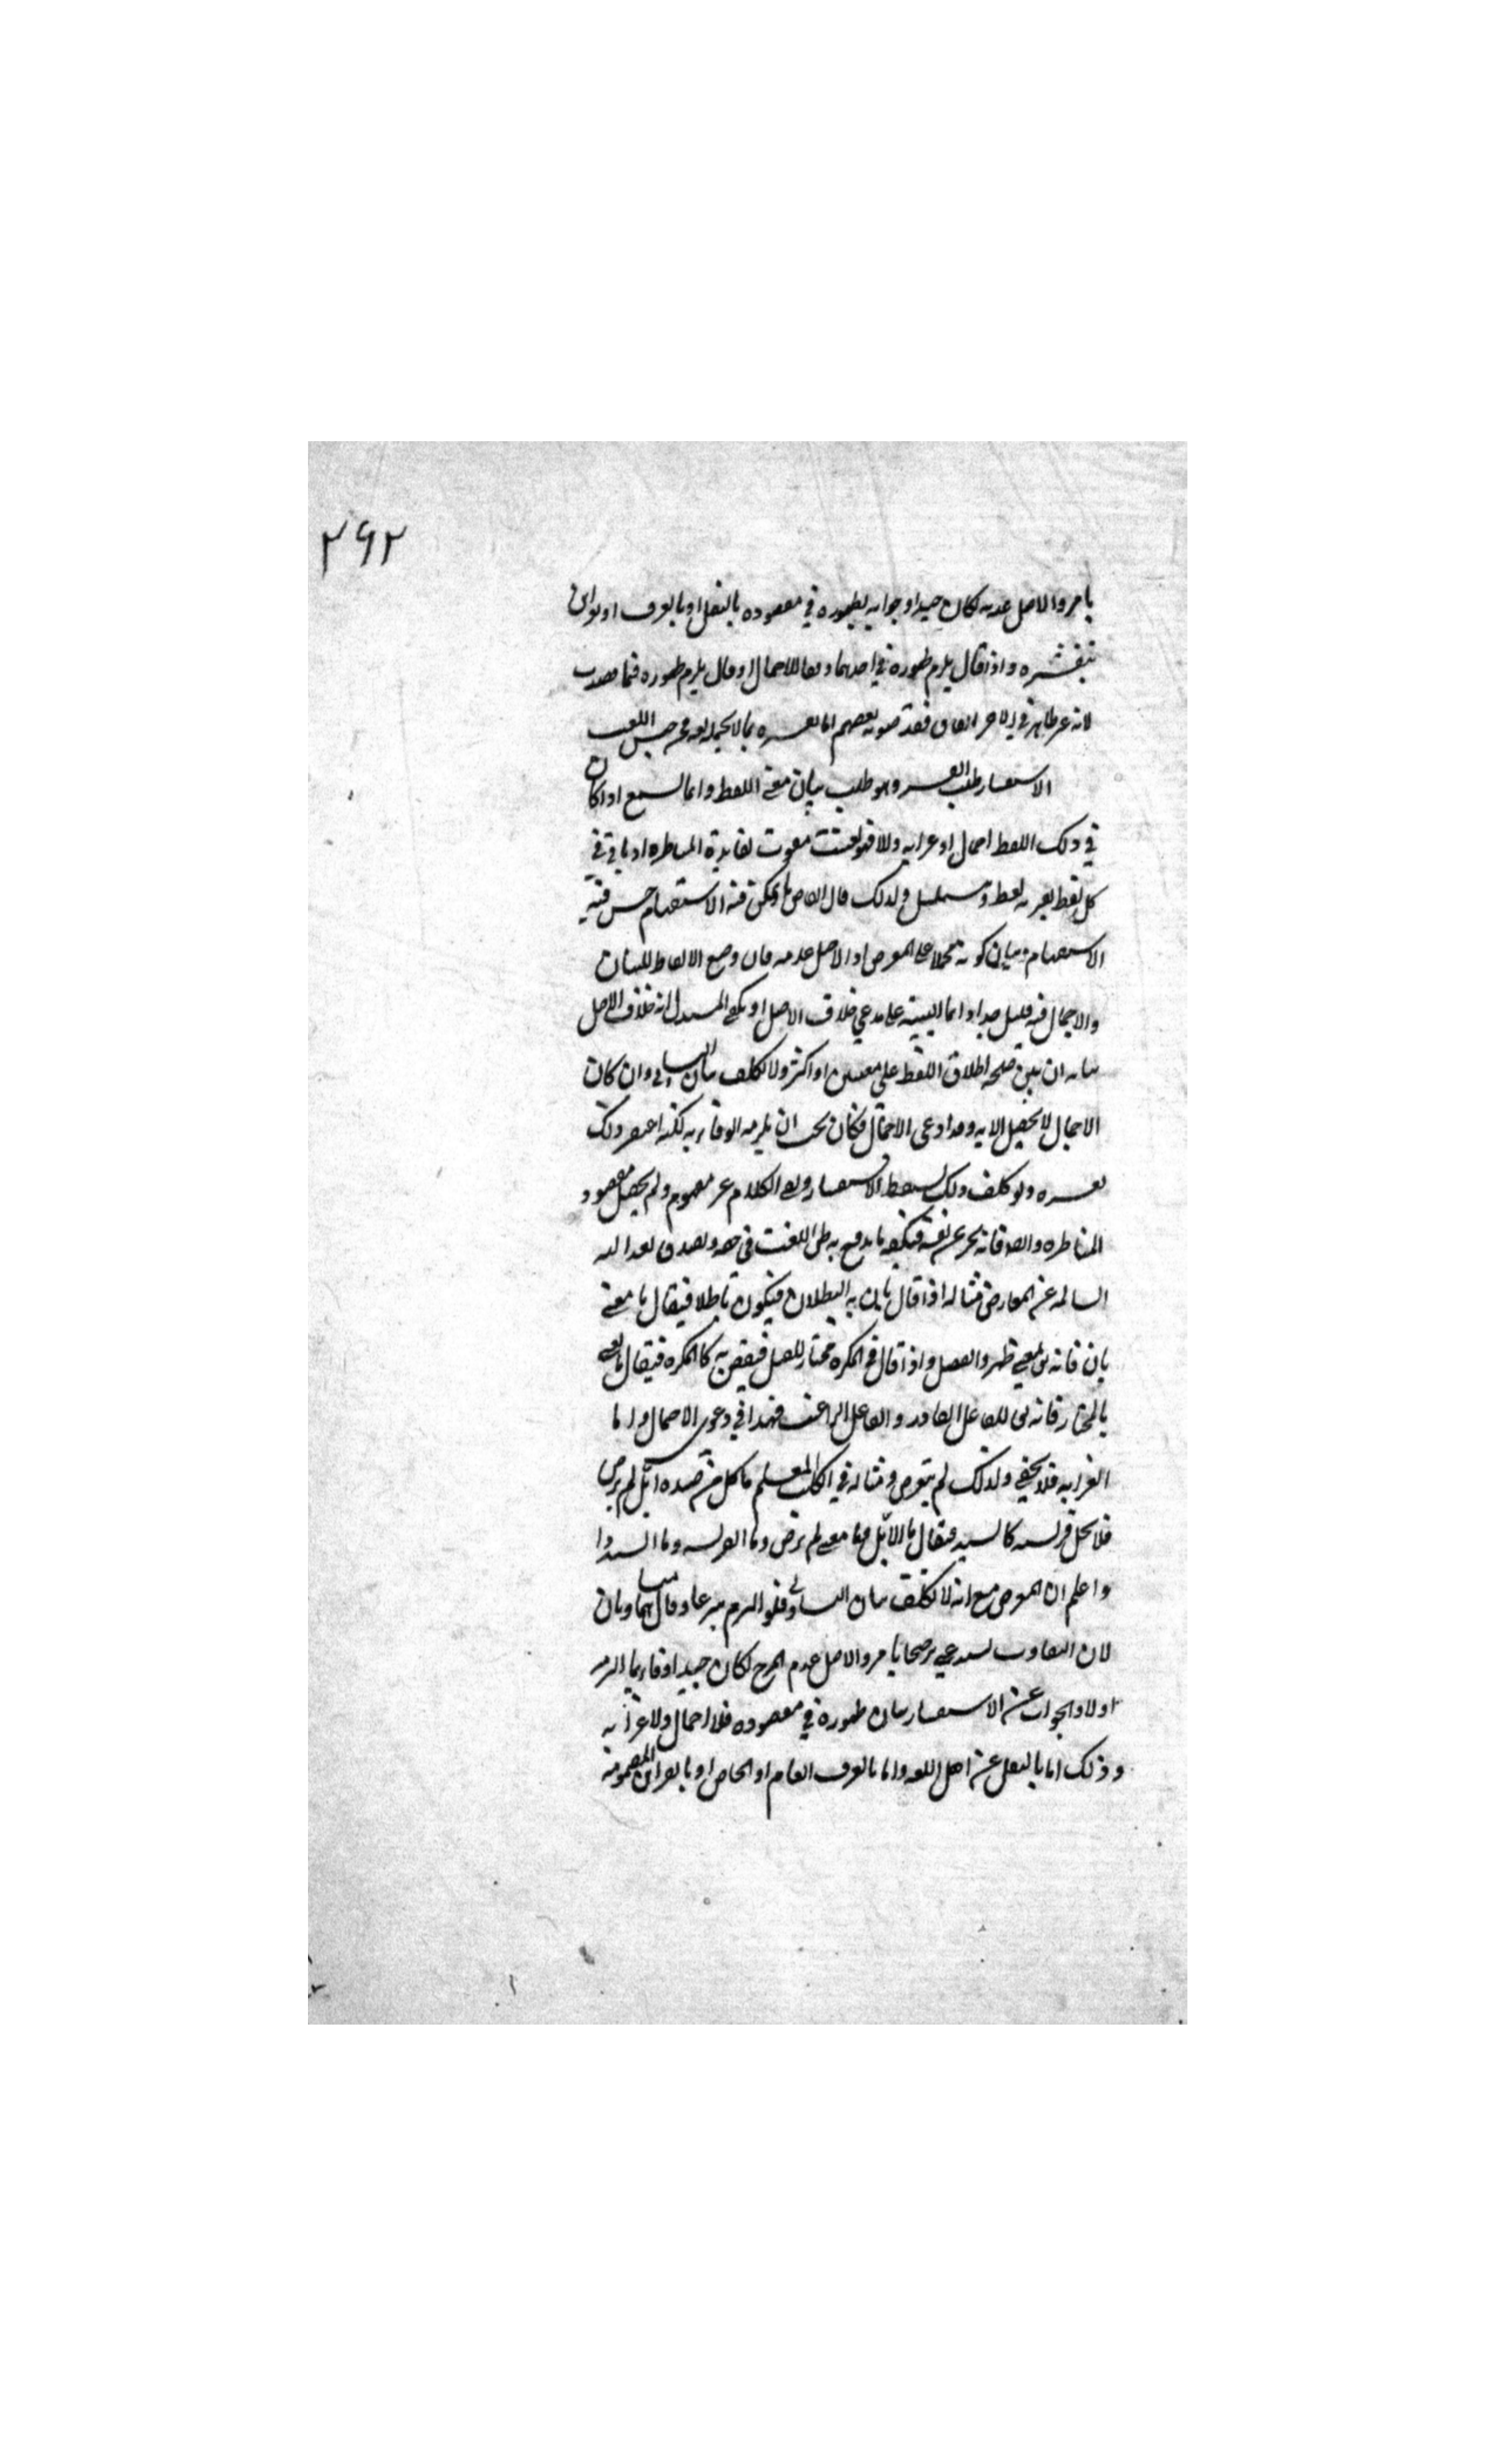 ٢٩٢
بامر والاصل عدمه لكان جيدا وجوابه بظهوره في مقصوده بالنقل او بالعرف او بقرائن
بتفسيره واذا قال يلزم ظهوره في احدهما دفعا للاجمال او قال يلزم ظهوره فيما قصدت
لانه غير ظاهر في الاخر اتفاقا فقد صوبه بعضهم اما تفسيره بما لا يحتمله لغة فمن جنس اللعب
الاستفسار طلب التفسير وهو طلب بيان معنى اللفظ وانما يسمع اذا كان
في ذلك اللفظ اجمال او غرابه والا فهو تعنت مفوت لفايدة المناظره اذ ياتي في
كل لفظ يفسر به لفظ ويتسلسل ولذلك قال القاضي ما يمكن فيه الاستبهام حسن فيه
الاستفهام وبيان كونه مجملا على المعترض اذ الاصل عدمه فان وضع الالفاظ للبيان
والاجمال فيه قليل جدا وانما البينة على مدعي خلاف الاصل او يكفي المستدل انه خلاف الاصل
بيانه ان يبين صحة اطلاق اللفظ على معنيين او اكثر ولا يكلف بيان التساوي وان كان
الاجمال لا يحصل الا به وقد ادعى الاجمال فكان يجب ان يلزمه الوفاء به لكنه اغتفر ذلك
لعسره ولو كلف ذلك لسقط الاستفسار وبقي الكلام غير مفهوم ولم يحصل مقصود
المناظره وايضا فانه يخبر عن نفسه فيكفيه ما يدفع به ظن التعنت في حقه ويصدق لعدالته
السالمه عن المعارض مثاله اذا قال بان به البطلان فيكون باطلا فيقال ما معنى
بان فانه بمعنى ظهر وانفصل واذا قال في المكره مختار للقتل فيقتص به كالمكره فيقال ما تعني
بالمختار فانه يق للفاعل القادر والفاعل الراغب فهذا في دعوى الاجمال واما
الغرابه فلا يخفى ولذلك لم يتعرض ومثاله في الكلب المعلم ياكل من صيده ايل لم يرض
فلا يحل فريسته كالسيد فيقال ما الايل وما معنى لم يرض وما الفريسه وما السيد
واعلم ان المعترض مع انه لا يكلف بيان التساوي فلو التزم تبرعا وقال هما متساويان
لان التفاوت يستدعي ترجيحا بامر والاصل عدم المرجح لكان جيدا وفاء بما التزم
اولا والجواب عن الاستفسار بيان ظهوره في مقصوده فلا اجمال ولا غرابه
وذلك اما بالنقل عن اهل اللغه واما بالعرف العام او الخاص او بالقرائن المضمومة